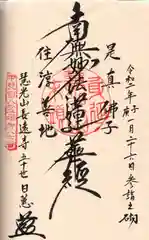 令和二年庚子一月二十六日参詣之砌
是真佛子
南無妙法蓮華経
住淳善地
慧光山長遠寺五十世日慈